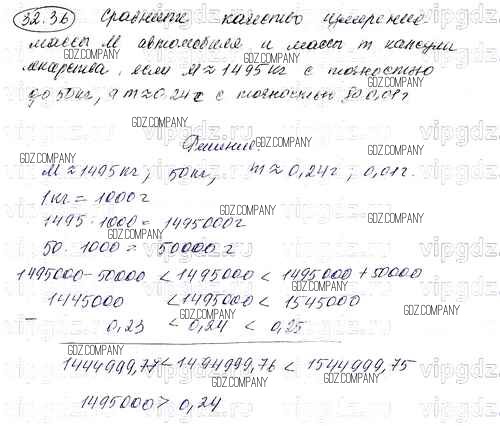 32.36 Сравните качество измерений
массы M автомобиля и массы m капсулы
лекарства, если M ≈ 1495 кг с точностью
до 50 кг, а m ≈ 0,24 г с точностью до 0,01 г
Решение.
M ≈ 1495 кг; 50 кг, m ≈ 0,24 г; 0,01 г.
1 кг = 1000 г
1495 · 1000 = 1495000 г
50 · 1000 = 50000 г
1495000 - 50000 < 1495000 < 1495000 + 50000
1445000 < 1495000 < 1545000
- 0,23 < 0,24 < 0,25
1444999,77 < 1494999,76 < 1544999,75
1495000 > 0,24
GDZ.COMPANY
vipgdz.ru